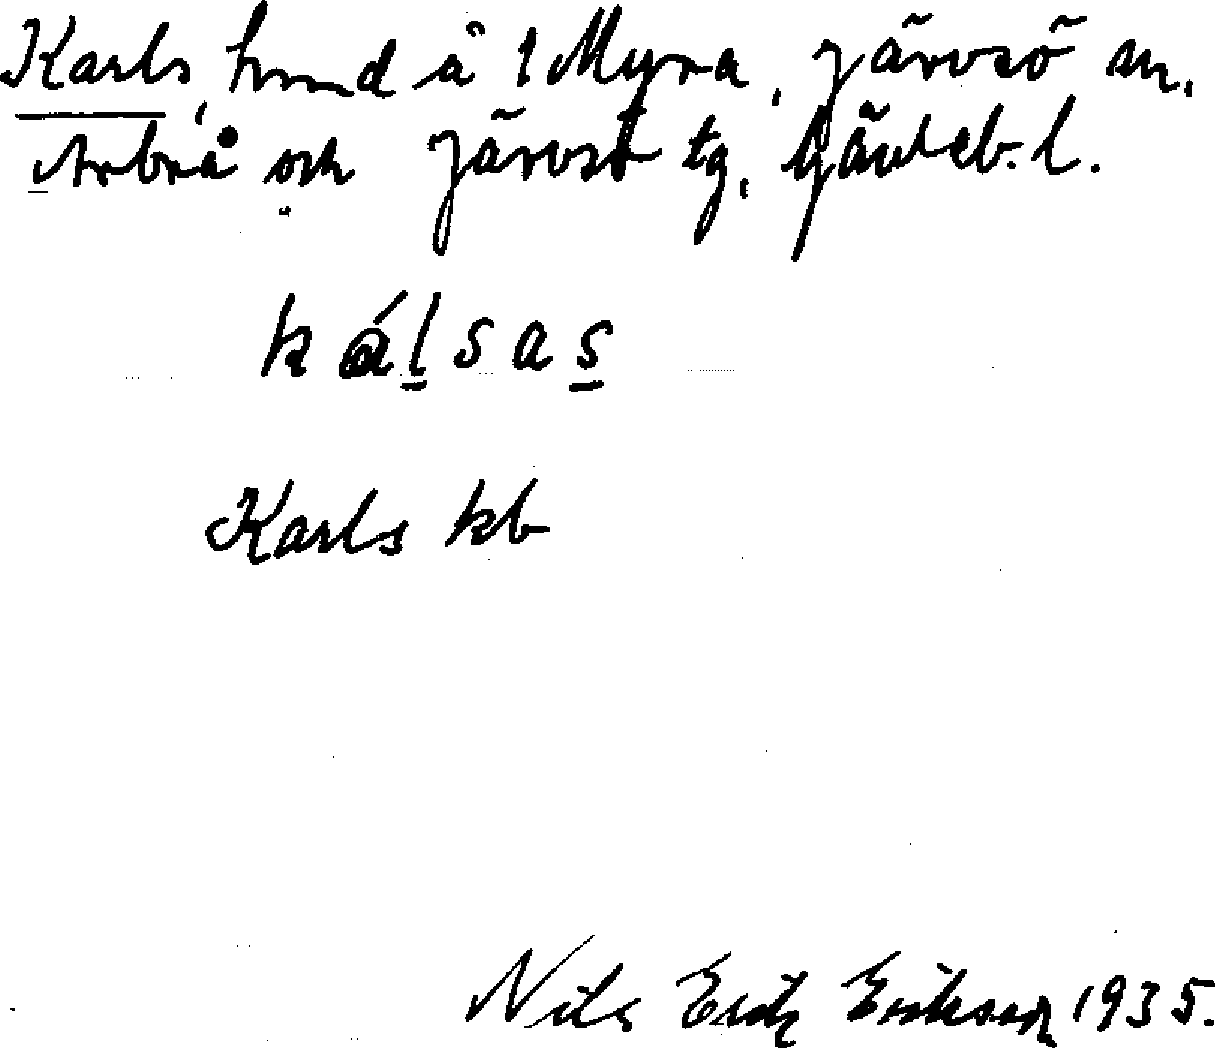 Karls, hmd å 1 Myra, Järvsö sn.
Arbrå och Järvsö tg, Gävleb. l.
kálsas
Karls kb
Nils Erik Eriksson 1935.